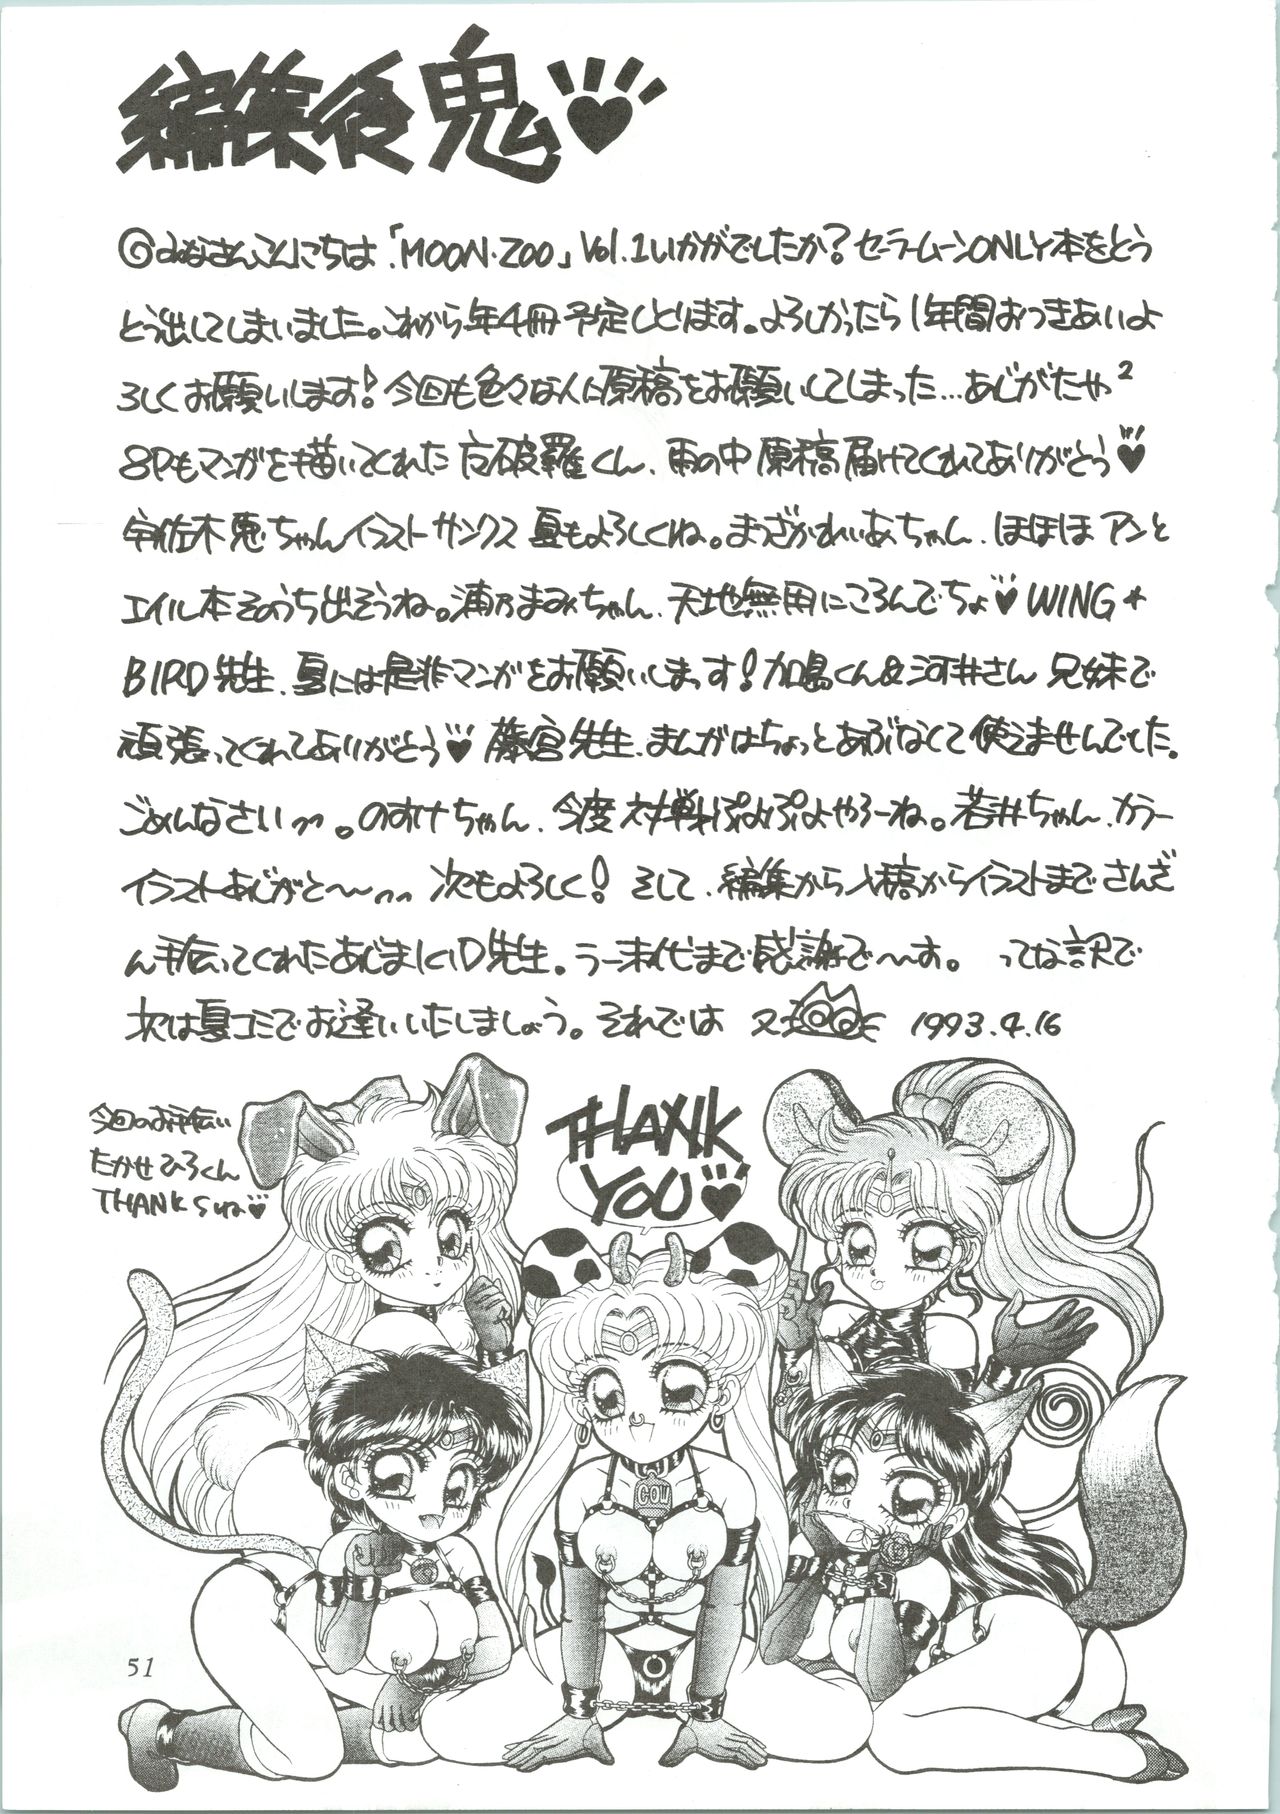 編集後鬼
◎みなさんこんにちは「MOON・ZOO」Vol.1いかがでしたか?セーラームーンONLY本をとう
とう出してしまいました。これから年4冊予定しとります。よろしかったら1年間おつきあいよ
ろしくお願いします!今回も色々な人に原稿をお願いしてしまった…ありがたや²
8Pもマンガを描いてくれた 破羅くん、雨の中原稿届けてくれてありがとう♥
宇佐木恵ちゃんイラストサンクス 夏もよろしくね。まつざかれいあちゃん、ほほほ アンと
エイル本そのうち出そうね。浦乃まみちゃん、天地無用にころんでちょ♥WING★
BIRD先生、夏には是非マンガをお願いします!加島くん&河井さん 兄妹で
頑張ってくれてありがとう♥ 藤宮先生、まんがはちょっとあぶなくて使えませんでした。
ごめんなさい〜。のすけちゃん、今度対戦ぷよぷよやろーね。若井ちゃん、カラー
イラストありがと〜〜 次もよろしく!そして、編集から入稿からイラストまでさんざ
ん手伝ってくれたあじまKID先生。うー末代まで感謝で〜〜す。 ってな訳で
次は夏コミでお逢いいたしましょう。それでは 1993.4.16
今回のお手伝い
たかせひろくん
THANKSね♥
THANK
YOU♥
COW
51